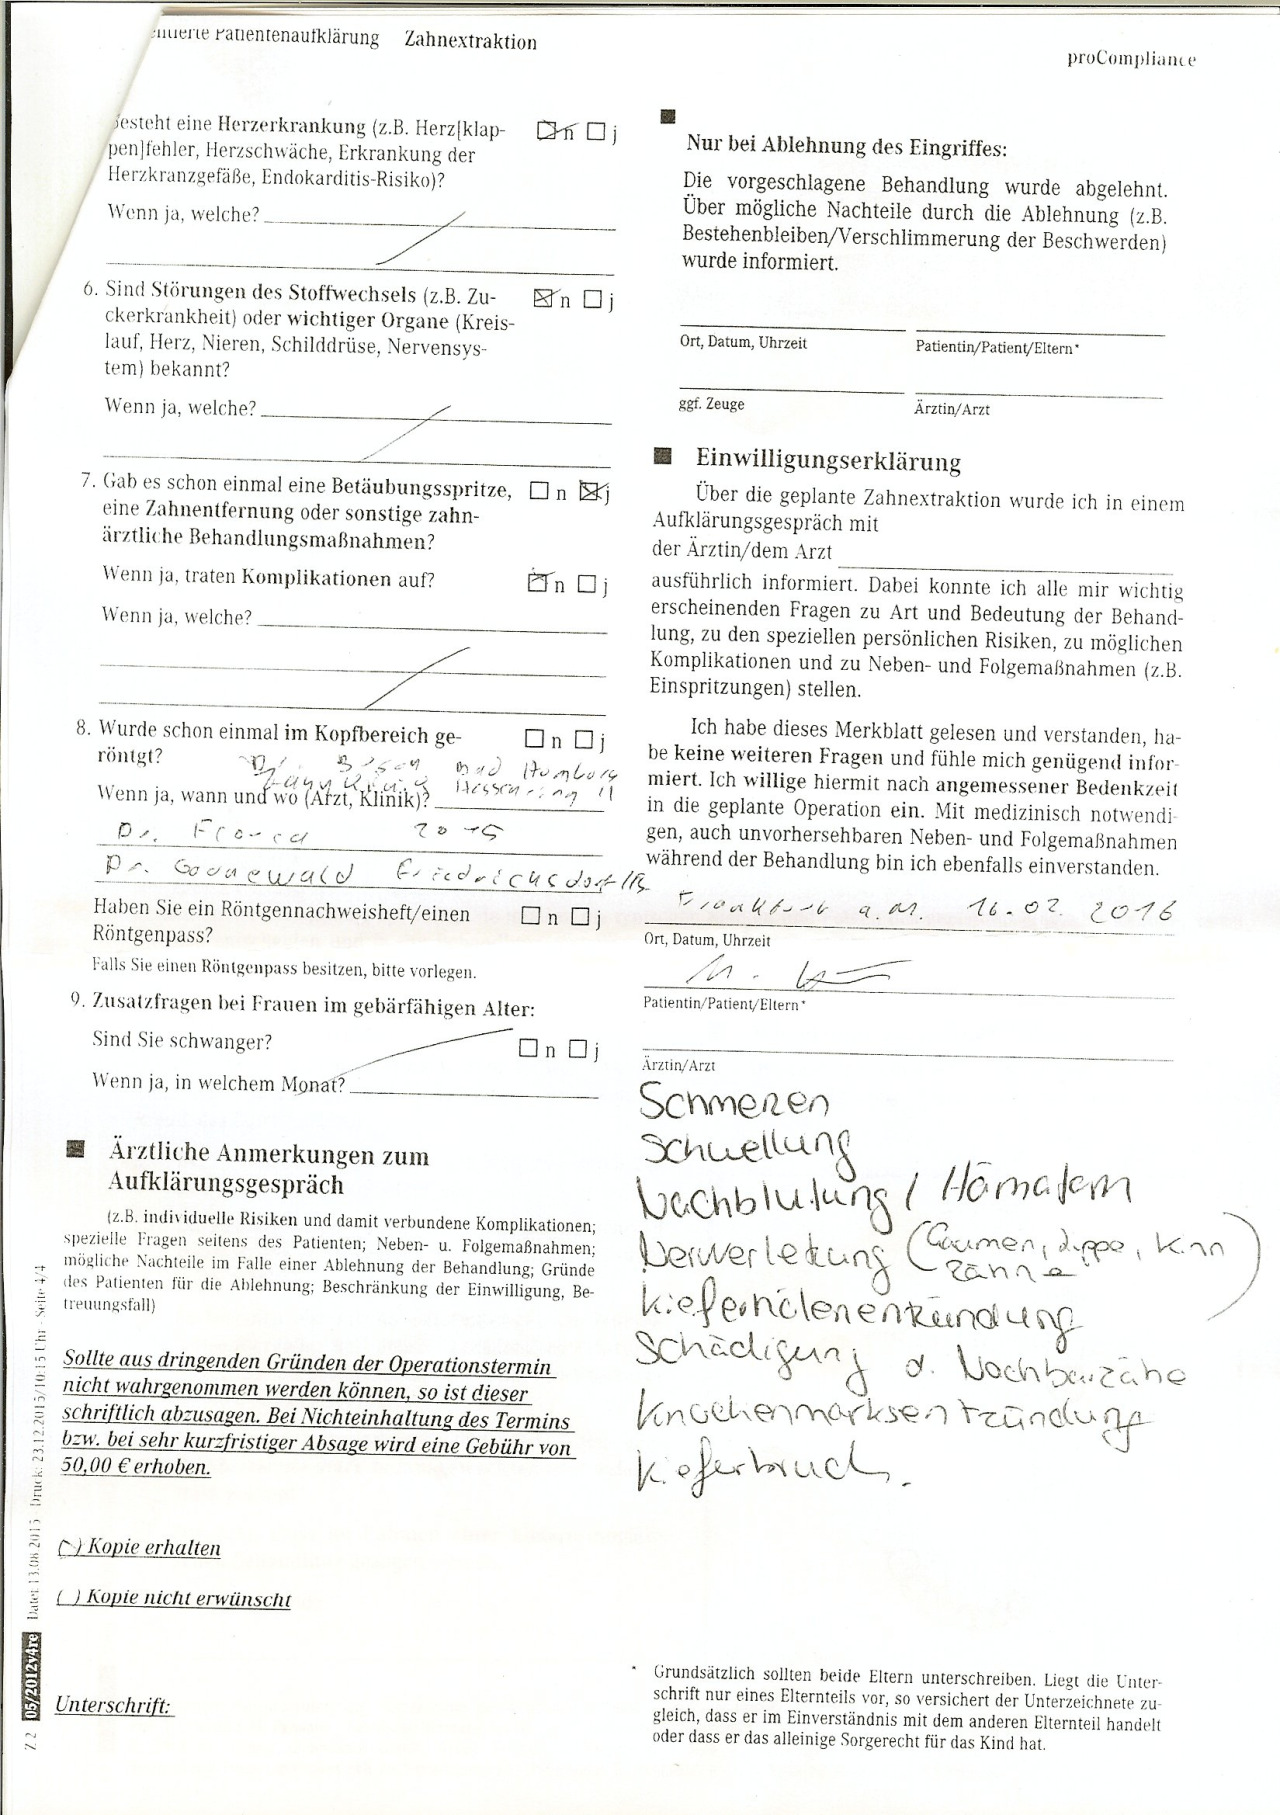 Patientenaufklärung Zahnextraktion
proCompliance
esteht eine Herzerkrankung (z.B. Herz[klap-
pen]fehler, Herzschwäche, Erkrankung der
Herzkranzgefäße, Endokarditis-Risiko)?
n j
Wenn ja, welche?
6. Sind Störungen des Stoffwechsels (z.B. Zu-
ckerkrankheit) oder wichtiger Organe (Kreis-
lauf, Herz, Nieren, Schilddrüse, Nervensys-
tem) bekannt?
n j
Wenn ja, welche?
7. Gab es schon einmal eine Betäubungsspritze,
eine Zahnentfernung oder sonstige zahn-
ärztliche Behandlungsmaßnahmen?
n j
Wenn ja, traten Komplikationen auf? n j
Wenn ja, welche?
8. Wurde schon einmal im Kopfbereich ge-
röntgt?
n j
Dr. Bad Homburg
Hessenring 11
Wenn ja, wann und wo (Arzt, Klinik)?
Dr. 2015
Dr. Friedrichsdorf
Haben Sie ein Röntgennachweisheft/einen
Röntgenpass?
n j
Falls Sie einen Röntgenpass besitzen, bitte vorlegen.
9. Zusatzfragen bei Frauen im gebärfähigen Alter:
Sind Sie schwanger? n j
Wenn ja, in welchem Monat?
Ärztliche Anmerkungen zum
Aufklärungsgespräch
(z.B. individuelle Risiken und damit verbundene Komplikationen;
spezielle Fragen seitens des Patienten; Neben- u. Folgemaßnahmen;
mögliche Nachteile im Falle einer Ablehnung der Behandlung; Gründe
des Patienten für die Ablehnung; Beschränkung der Einwilligung, Be-
treuungsfall)
Sollte aus dringenden Gründen der Operationstermin
nicht wahrgenommen werden können, so ist dieser
schriftlich abzusagen. Bei Nichteinhaltung des Termins
bzw. bei sehr kurzfristiger Absage wird eine Gebühr von
50,00 € erhoben.
( ) Kopie erhalten
( ) Kopie nicht erwünscht
Unterschrift:
Z 2 05/2012v4re Datei: 13.08.2013 · Druck: 23.12.2015/10:15 Uhr · Seite 4/4
Nur bei Ablehnung des Eingriffes:
Die vorgeschlagene Behandlung wurde abgelehnt.
Über mögliche Nachteile durch die Ablehnung (z.B.
Bestehenbleiben/Verschlimmerung der Beschwerden)
wurde informiert.
Ort, Datum, Uhrzeit Patientin/Patient/Eltern*
ggf. Zeuge Ärztin/Arzt
Einwilligungserklärung
Über die geplante Zahnextraktion wurde ich in einem
Aufklärungsgespräch mit
der Ärztin/dem Arzt
ausführlich informiert. Dabei konnte ich alle mir wichtig
erscheinenden Fragen zu Art und Bedeutung der Behand-
lung, zu den speziellen persönlichen Risiken, zu möglichen
Komplikationen und zu Neben- und Folgemaßnahmen (z.B.
Einspritzungen) stellen.
Ich habe dieses Merkblatt gelesen und verstanden, ha-
be keine weiteren Fragen und fühle mich genügend infor-
miert. Ich willige hiermit nach angemessener Bedenkzeit
in die geplante Operation ein. Mit medizinisch notwendi-
gen, auch unvorhersehbaren Neben- und Folgemaßnahmen
während der Behandlung bin ich ebenfalls einverstanden.
Frankfurt a.M. 16.02.2016
Ort, Datum, Uhrzeit
Patientin/Patient/Eltern*
Ärztin/Arzt
Schmerzen
Schwellung
Nachblutung / Hämatom
Nervverletzung (Gaumen, Lippe, Kinn
Zähne)
Kieferhölenentzündung
Schädigung d. Nachbarzähe
Knochenmarksentzündung
Kieferbruch.
* Grundsätzlich sollten beide Eltern unterschreiben. Liegt die Unter-
schrift nur eines Elternteils vor, so versichert der Unterzeichnete zu-
gleich, dass er im Einverständnis mit dem anderen Elternteil handelt
oder dass er das alleinige Sorgerecht für das Kind hat.